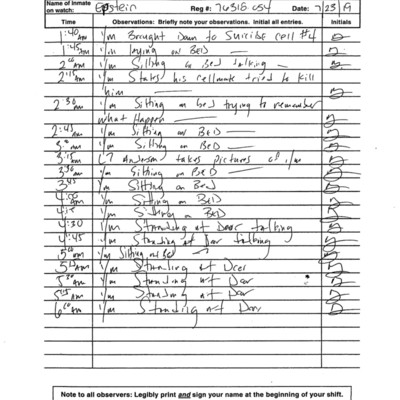 Name of Inmate
on watch: Epstein Reg #: 76318-054 Date: 7/23/19
Time Observations: Briefly note your observations. Initial all entries. Initials
1:40 am I/m Brought Down to Suicide cell #4
1:45 am I/m laying on BED
2:00 am I/m Sitting on Bed talking
2:15 am I/m States his cellmate tried to kill
him
2:30 am I/m Sitting on bed trying to remember
what Happen
2:45 am I/m Sitting on BED
3:00 am I/m Sitting on BED
3:15 am LT Anderson takes pictures of I/m
3:30 am I/m Sitting on BED
3:45 I/m Sitting on Bed
4:00 am I/m Sitting on BED
4:15 I/m on BED
4:30 I/m Standing at Door talking
4:45 I/m Standing at Door talking
5:00 am I/m Sitting on Bed
5:15 am I/m Standing at Door
I/m Standing at Door
I/m Standing at Door
6:00 am I/m Standing at Door
Note to all observers: Legibly print and sign your name at the beginning of your shift.